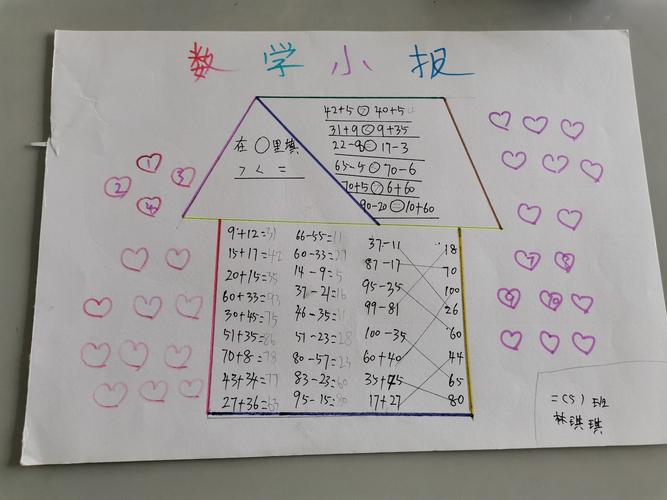 数学小报
在○里填
> < =
42+5○40+5
31+9○9+35
22-8○17-3
65-5○70-6
70+5○6+60
90-20=10+60
① ③
② ④
9+12=31
15+17=42
20+15=35
60+33=93
30+45=75
51+35=86
70+8=78
43+34=77
27+36=63
66-55=11
60-33=27
14-9=5
37-21=16
46-35=11
51-23=28
80-57=23
83-23=60
95-15=80
37-11 18
87-17 70
95-35 100
99-81 26
100-35 60
60+40 44
35+45 65
17+27 80
7 8
9 10
二(5)班
林琪琪